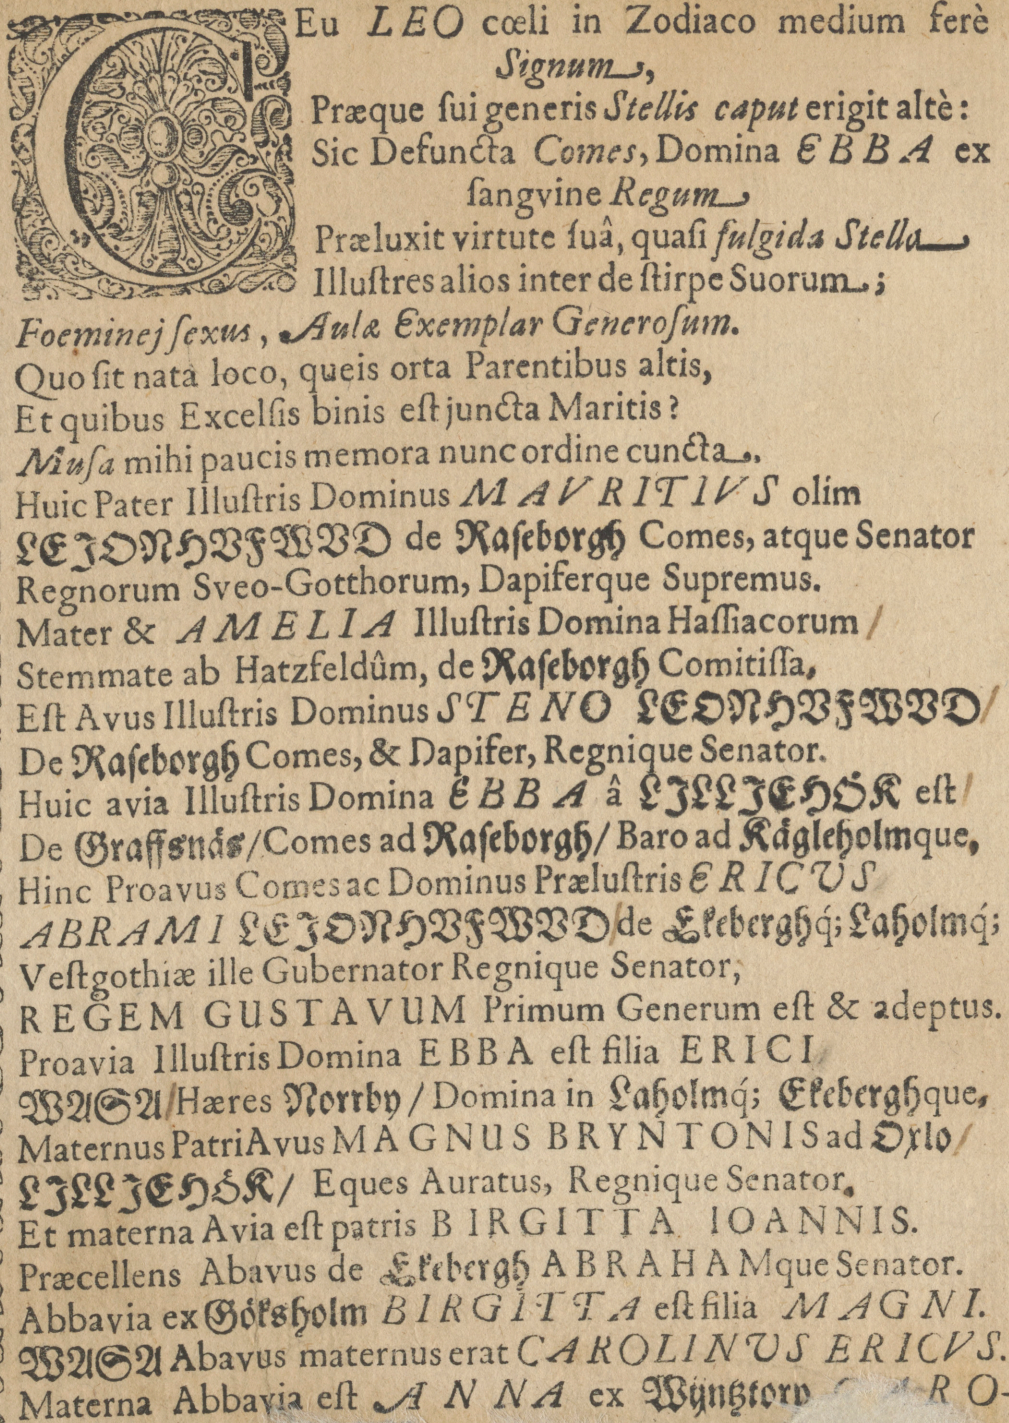 CEu LEO cœli in Zodiaco medium ferè
Signum,
Præque ſui generis Stellis caput erigit altè:
Sic Defuncta Comes, Domina EBBA ex
ſangvine Regum
Præluxit virtute ſuâ, quaſi fulgida Stella
Illuſtres alios inter de ſtirpe Suorum;
Foeminej ſexus, Aulæ Exemplar Generoſum.
Quo ſit nata loco, queis orta Parentibus altis,
Et quibus Excelſis binis eſt juncta Maritis?
Muſa mihi paucis memora nunc ordine cuncta.
Huic Pater Illuſtris Dominus MAVRITIVS olim
LEJONHVFWVD de Raſeborgh Comes, atque Senator
Regnorum Sveo-Gotthorum, Dapiferque Supremus.
Mater & AMELIA Illuſtris Domina Haſſiacorum /
Stemmate ab Hatzfeldûm, de Raſeborgh Comitiſſa,
Eſt Avus Illuſtris Dominus STENO LEONHVFWVD /
De Raſeborgh Comes, & Dapifer, Regnique Senator.
Huic avia Illuſtris Domina EBBA â LJLLJEHÖK eſt /
De Graffsnäs / Comes ad Raſeborgh / Baro ad Kägleholmque,
Hinc Proavus Comes ac Dominus Præluſtris ERICUS
ABRAMI LEJONHVFWVD / de Ekeberghq́; Laholmq́;
Veſtgothiæ ille Gubernator Regnique Senator,
REGEM GUSTAVUM Primum Generum eſt & adeptus.
Proavia Illuſtris Domina EBBA eſt filia ERICI
WASA / Hæres Norrby / Domina in Laholmq́; Ekeberghque,
Maternus Patri Avus MAGNUS BRYNTONIS ad Oxlo /
LJLLJEHÖK / Eques Auratus, Regnique Senator,
Et materna Avia eſt patris BIRGITTA IOANNIS.
Præcellens Abavus de Ekebergh ABRAHAMque Senator.
Abbavia ex Göksholm BIRGITTA eſt filia MAGNI.
WASA Abavus maternus erat CAROLINUS ERICVS.
Materna Abbavia eſt ANNA ex Wyntztorp RO-